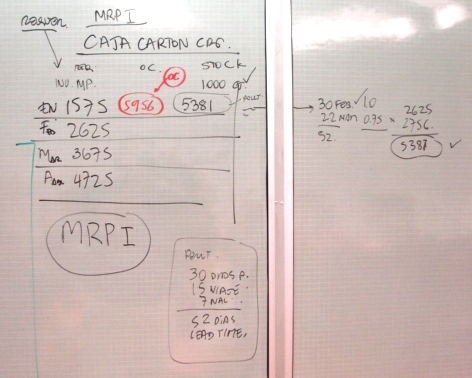 MRP I
CAJA CARTON CRG.
O.C.
STOCK
INV. MP.
OC
1000 ✓
EN 1575
5956
5381
FEB 2625
MAR 3675
ABR 4725
MRP I
30 FEB. ✓ 1.0
22 MAR 0.75
52.
2625
2756.
5381 ✓
30 DIAS P.
15 VIAJE
7 NAL.
52 DIAS
LEAD TIME.